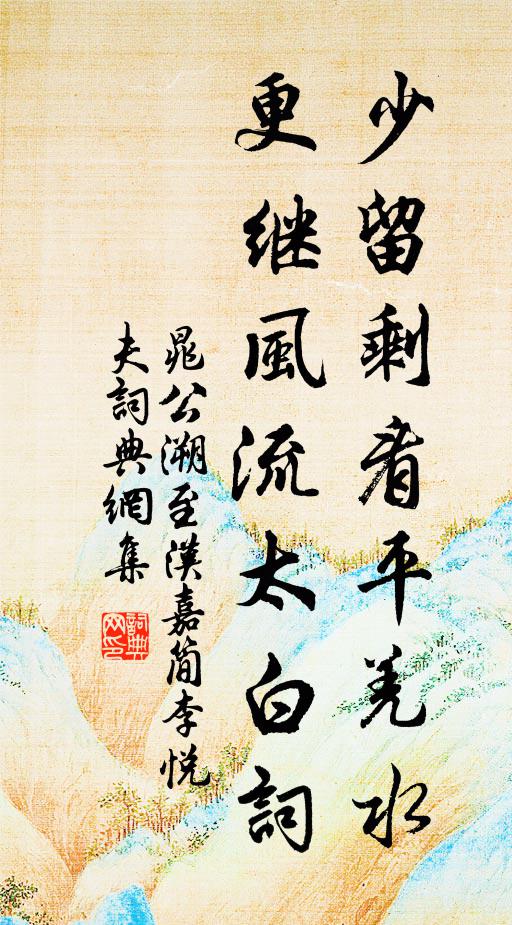 少留剩看平羌水
更继風流太白詞
晁公溯至漢嘉簡李悦
夫詞典網集
詞典
网印